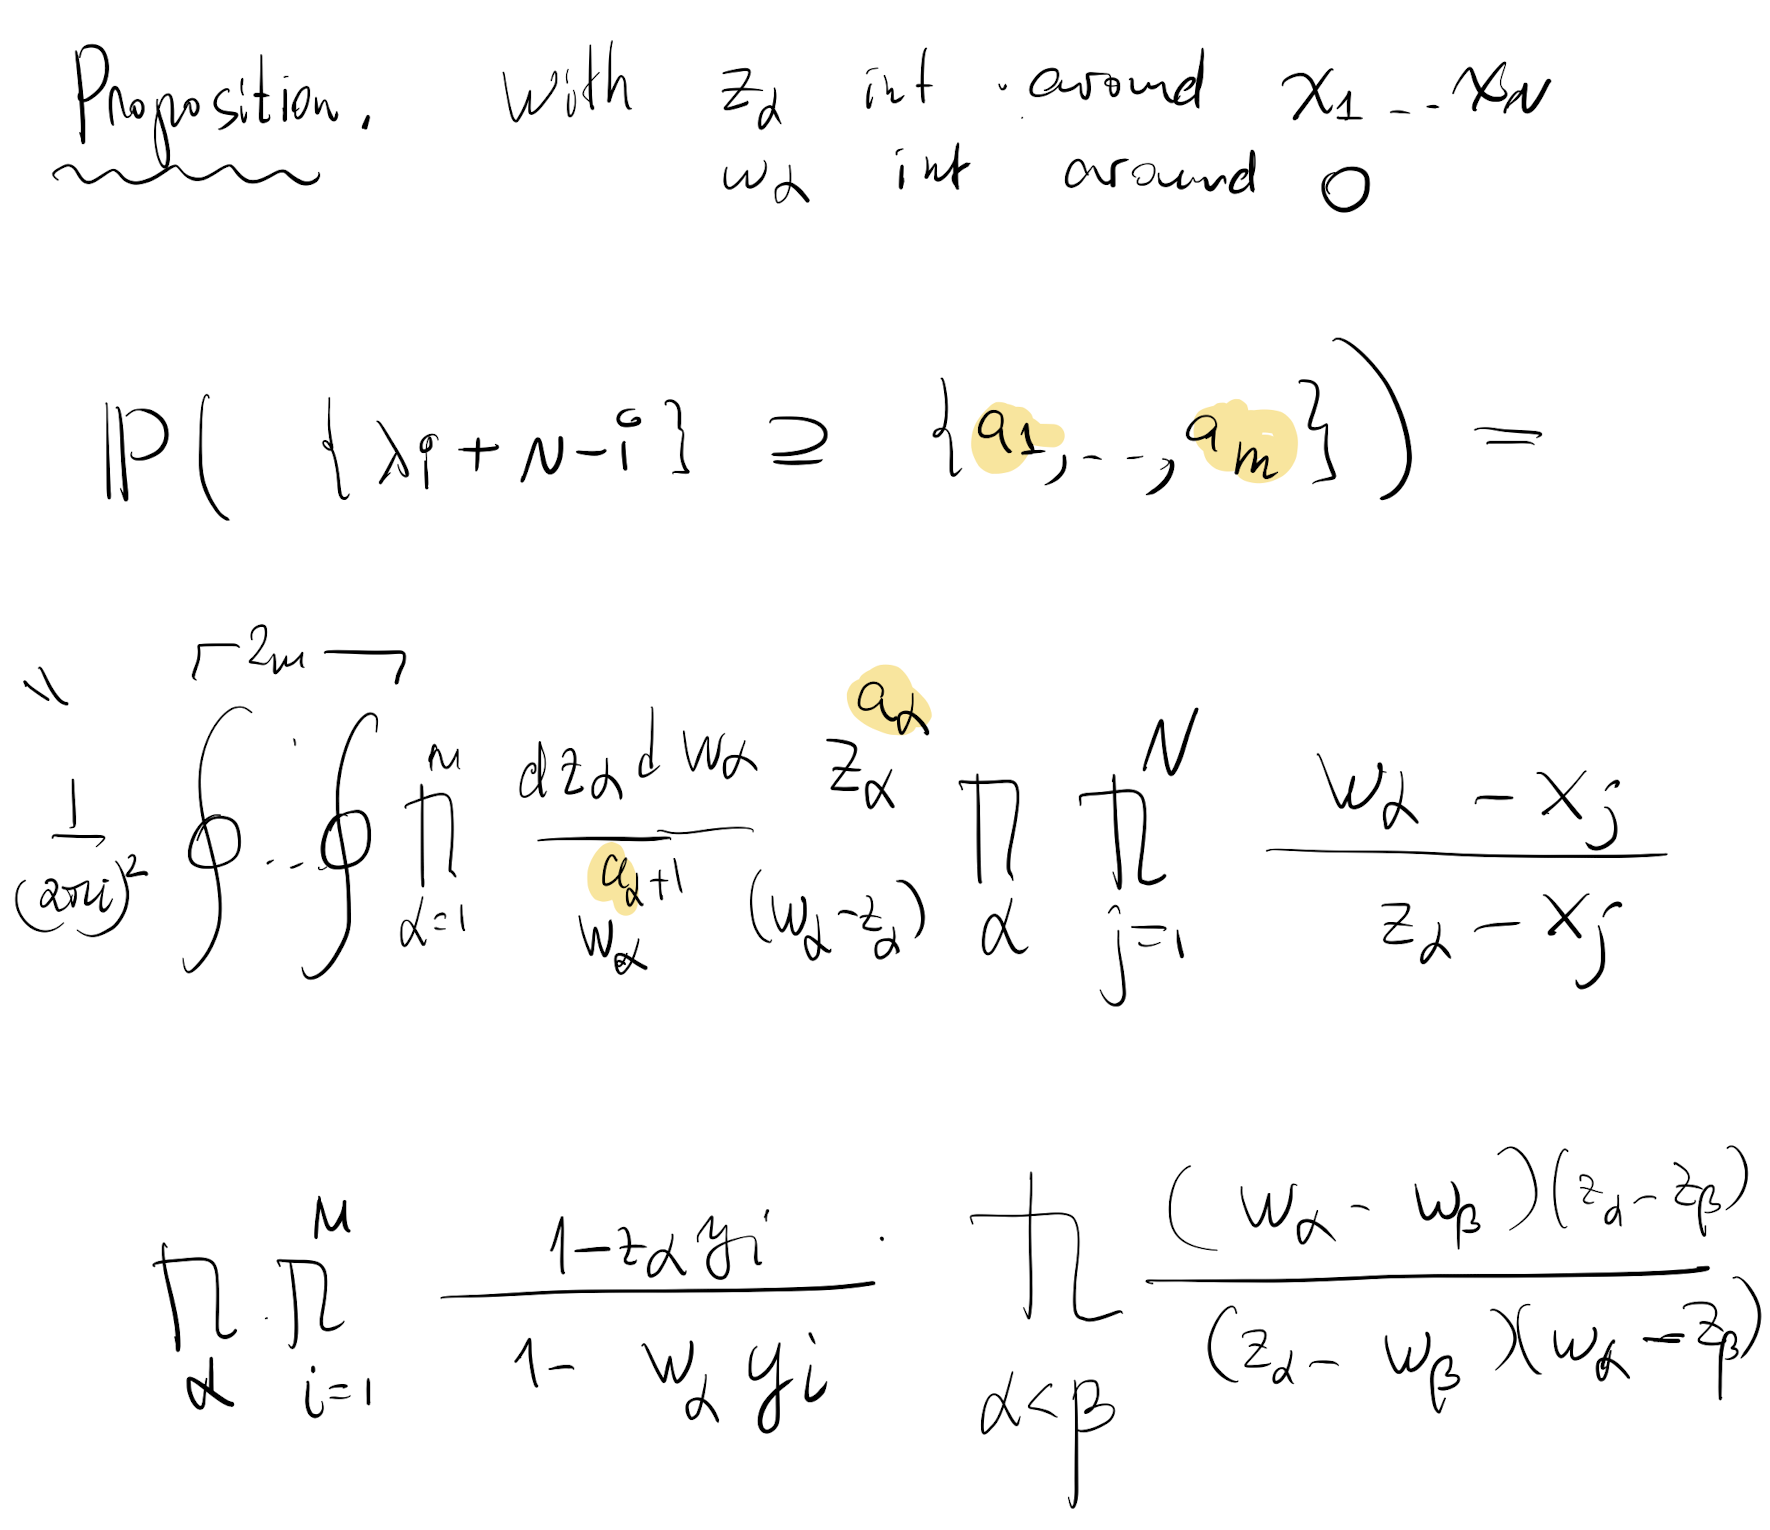 Proposition. With z_α int around x_1 -- x_N
w_α int around 0
ℙ( { λ_i + N-i } ⊇ {a_1, --, a_m} ) =
\\ \frac{1}{(2πi)^2} \overbrace{∮ .. ∮}^{2m} \prod_{α=1}^{m} \frac{dz_α dw_α \, z_α^{a_α}}{w_α^{a_α+1} (w_α - z_α)} \prod_α \prod_{j=1}^{N} \frac{w_α - x_j}{z_α - x_j}
\prod_α · \prod_{i=1}^{M} \frac{1 - z_α y_i}{1 - w_α y_i} · \prod_{α<β} \frac{(w_α - w_β)(z_α - z_β)}{(z_α - w_β)(w_α - z_β)}